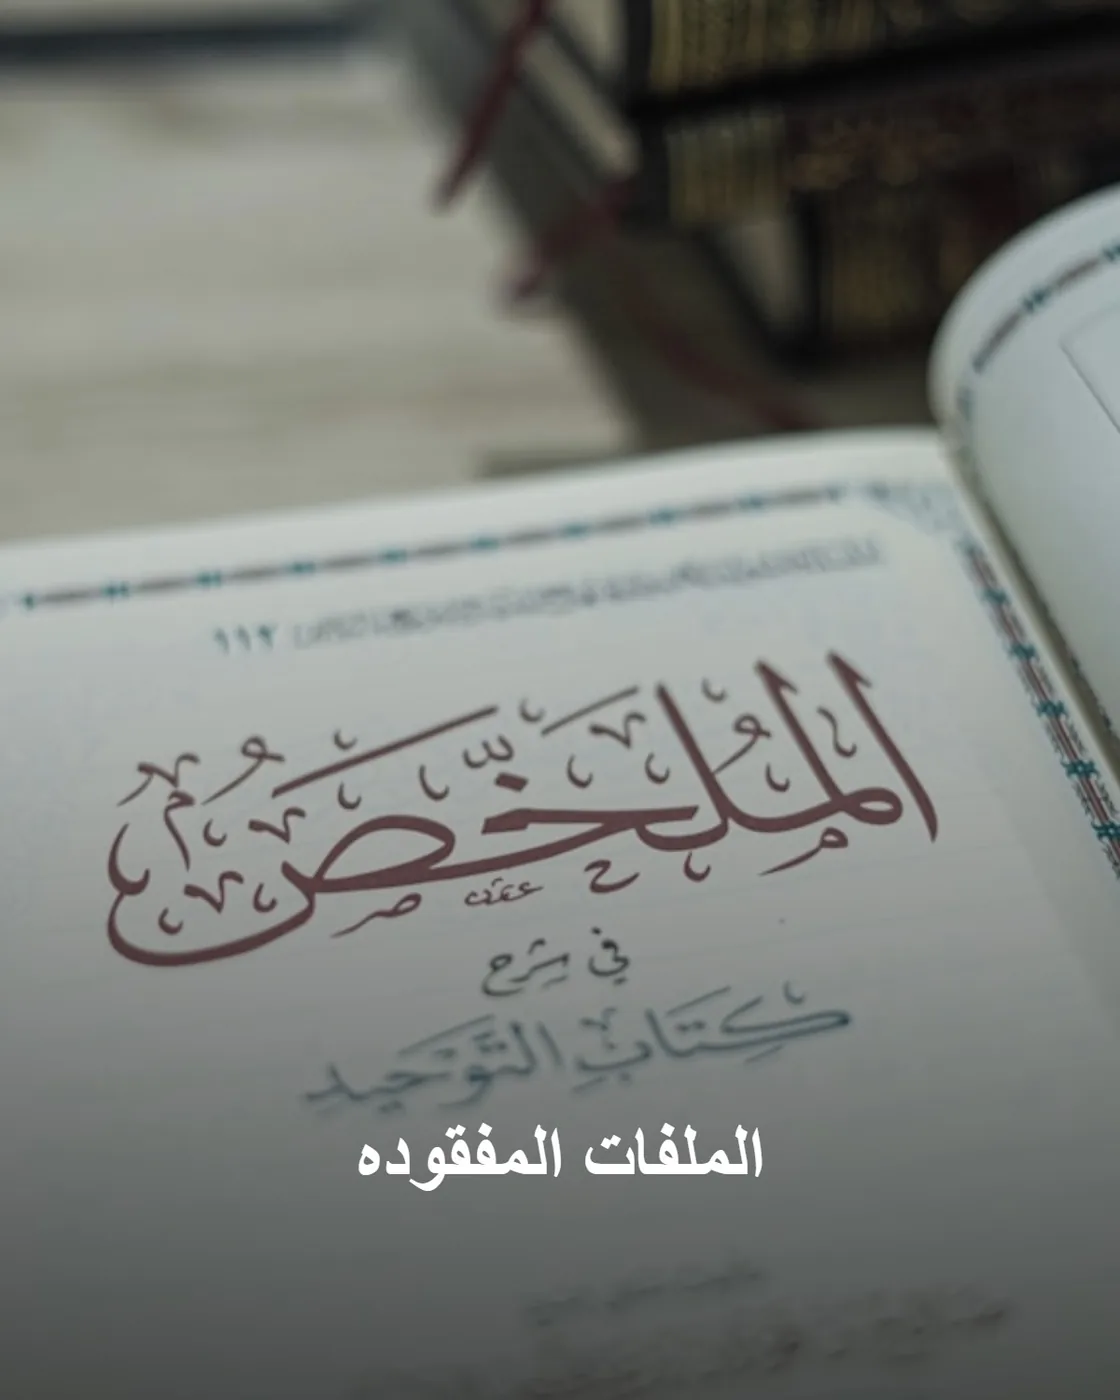 ١١٢
المُلَخَّصُ
في شرح
كِتَابِ التَّوْحِيدِ
الملفات المفقوده